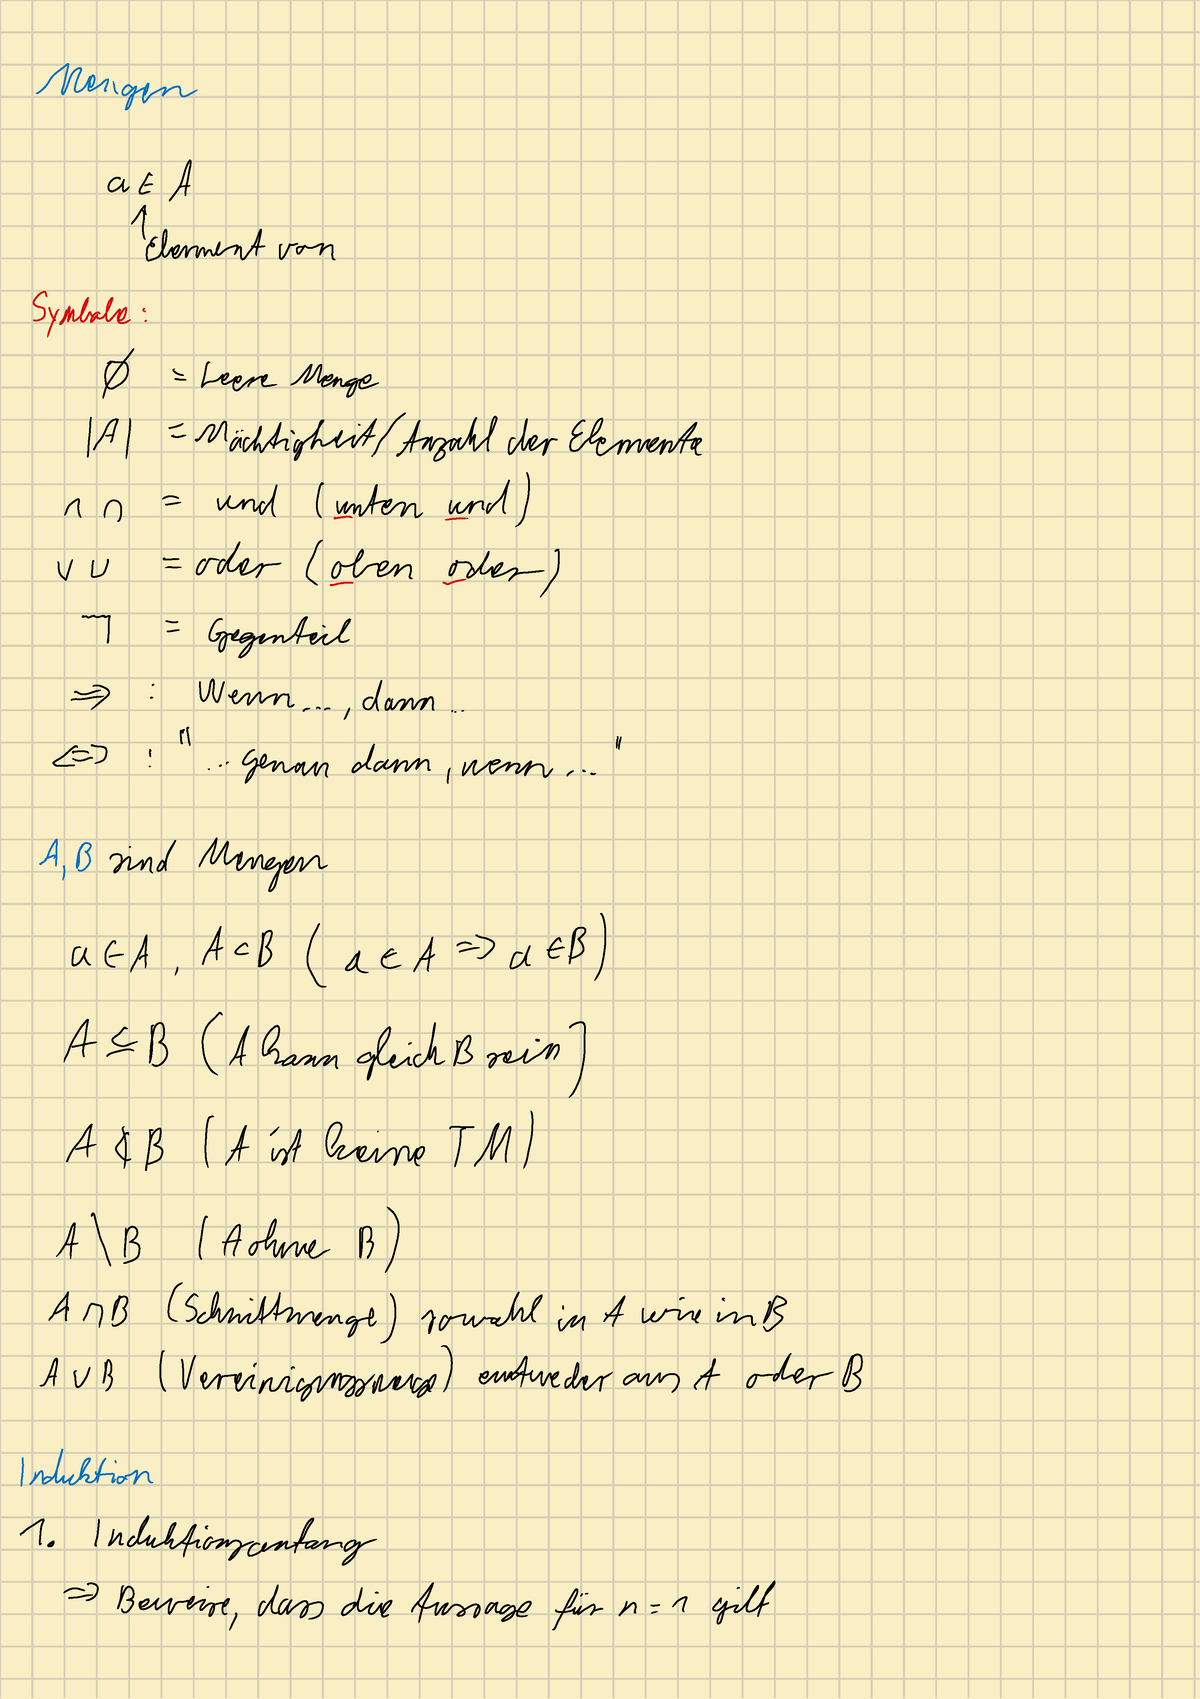 Mengen
a ∈ A
↑
Element von
Symbole:
∅ = Leere Menge
|A| = Mächtigkeit/Anzahl der Elemente
∧ ∩ = und (unten und)
∨ ∪ = oder (oben oder)
¬ = Gegenteil
⇒ : Wenn ..., dann ..
⇔ : " ... genau dann, wenn ... "
A, B sind Mengen
a ∈ A, A ⊂ B (a ∈ A ⇒ a ∈ B)
A ⊆ B (A kann gleich B sein)
A ⊄ B (A ist keine TM)
A \ B (A ohne B)
A ∩ B (Schnittmenge) sowohl in A wie in B
A ∪ B (Vereinigungsmenge) entweder aus A oder B
Induktion
1. Induktionsanfang
⇒ Beweise, dass die Aussage für n = 1 gilt